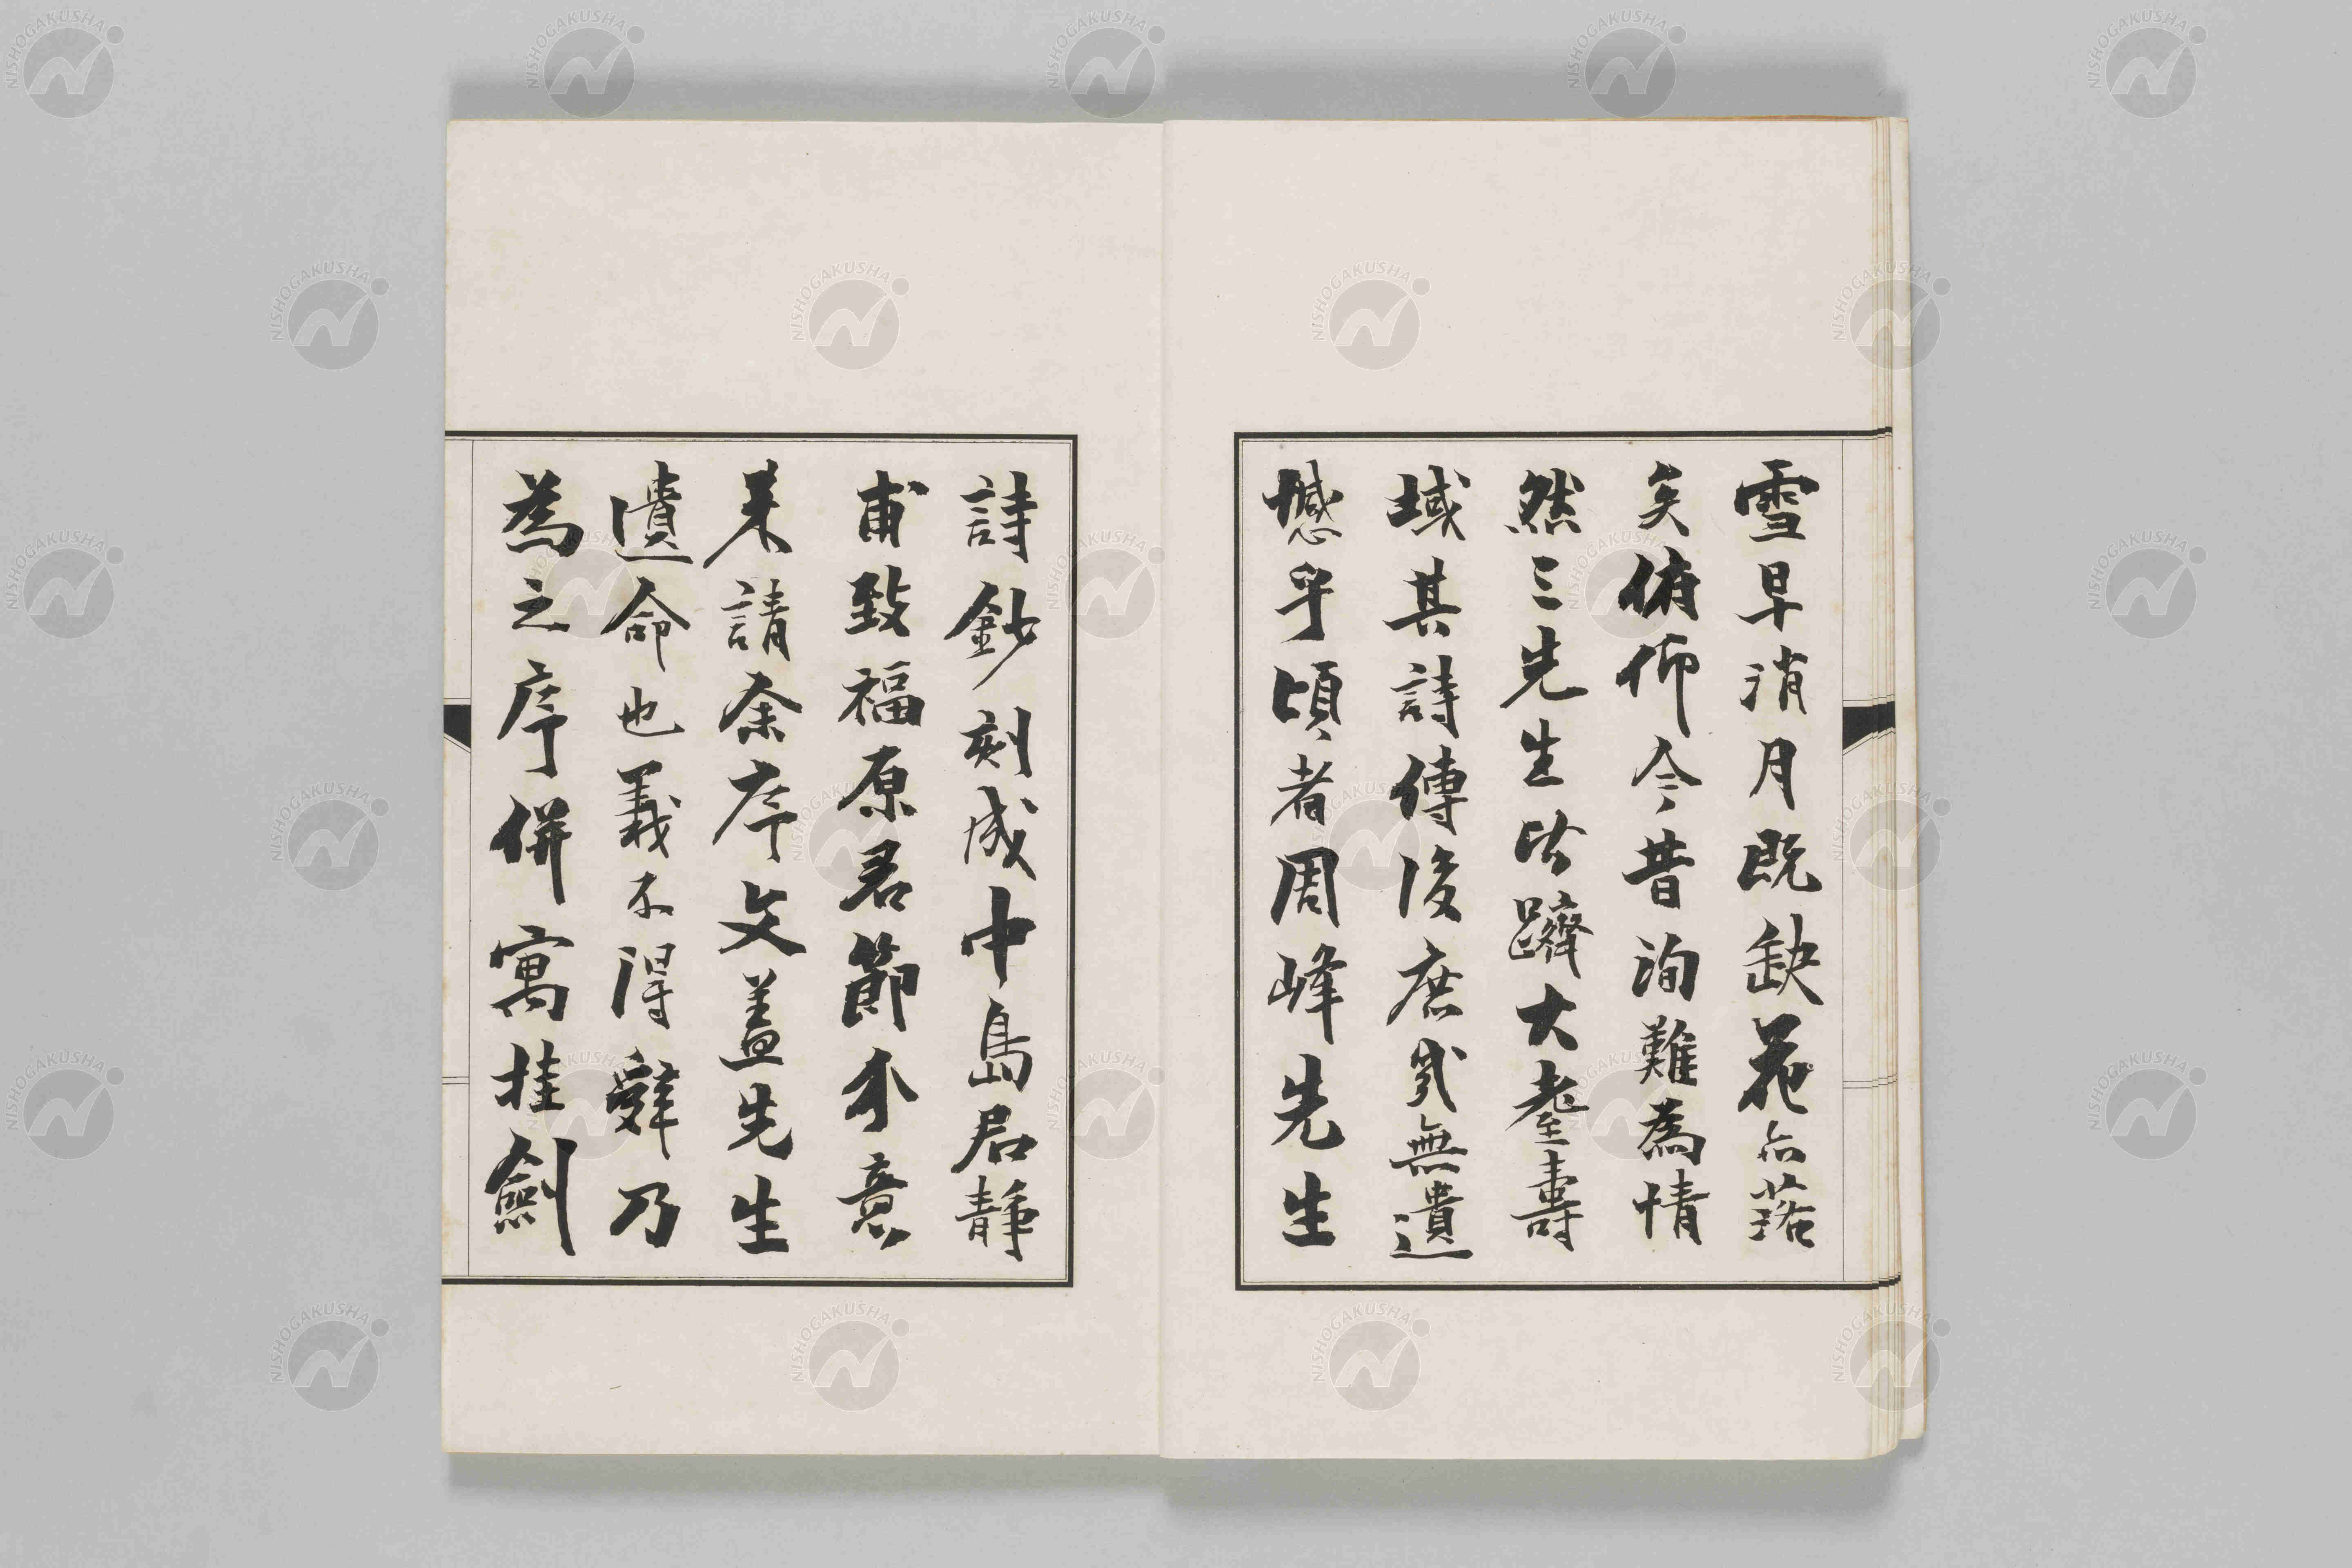 雪早消月既缺花亦落
矣俯仰今昔洵難為情
然三先生皆躋大耋壽
域其詩傳後庶幾無遺
憾乎頃者周峰先生
詩鈔刻成中島君靜
甫致福原君節夫意
来請余序文蓋先生
遺命也義不得辭乃
為之序併寓挂劍
NISHOGAKUSHA